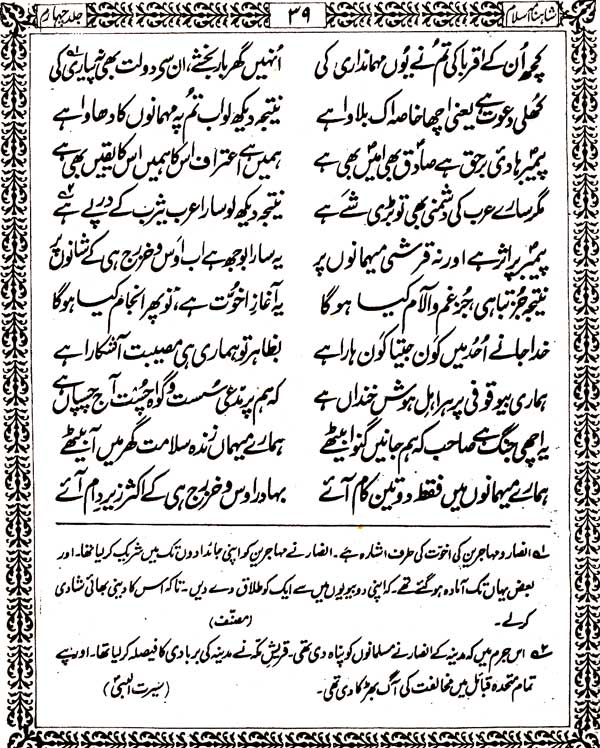 شاہنامۂ اسلام ۳۹ جلد چہارم
کچھ اُن کے اقربا کی تم نے یوں مہمانداری کی انہیں گھر بار بخشے، ان سی دولت بھی نیاری کی
کھلی دعوت ہے یعنی اچھا خاصہ اک بلاوا ہے نتیجہ دیکھ لو اب تم پہ مہمانوں کا دھاوا ہے
پیمبرؐ ہادیٔ برحق ہے صادق بھی امیں بھی ہے ہمیں ہے اعتراف اس کا ہمیں اس کا یقیں بھی ہے
مگر سارے عرب کی دشمنی بھی تو بڑی شے ہے نتیجہ دیکھ لو سارا عرب یثرب کے درپے ہے ۲
پیمبرؐ پر اثر ہے اور نہ قرشی میہمانوں پر یہ سارا بوجھ ہے اب اوس و خزرج ہی کے شانوں پر
نتیجہ جُز تباہی، جُز غم و آلام کیا ہو گا یہ آغازِ اخوت ہے، تو پھر انجام کیا ہو گا
خدا جانے اُحد میں کون جیتا کون ہارا ہے بظاہر تو ہماری ہی مصیبت آشکارا ہے
ہماری بیوقوفی پر ہر اہلِ ہوش خنداں ہے کہ ہم پر مدعی سُست و گواہ چُست آج چسپاں ہے
یہ اچھی جنگ ہے صاحب کہ ہم جانیں گنوا بیٹھے ہمارے میہماں زندہ سلامت گھر میں آ بیٹھے
ہمارے میہمانوں میں فقط دو تین کام آئے بہادر اوس و خزرج ہی کے اکثر زیرِ دام آئے
۱ انصار و مہاجرین کی اخوت کی طرف اشارہ ہے۔ انصار نے مہاجرین کو اپنی جائدادوں تک میں شریک کر لیا تھا۔ اور
بعض یہاں تک آمادہ ہو گئے تھے۔ کہ اپنی دو بیویوں میں سے ایک کو طلاق دے دیں۔ تاکہ اس کا دینی بھائی شادی
کر لے۔ (مصنف)
۲ اس جرم میں کہ مدینہ کے انصار نے مسلمانوں کو پناہ دی تھی۔ قریشِ مکہ نے مدینہ کی بربادی کا فیصلہ کر لیا تھا۔ اور اپنے
تمام متحدہ قبائل میں مخالفت کی آگ بھڑکا دی تھی۔ (سیرت النبیؐ)